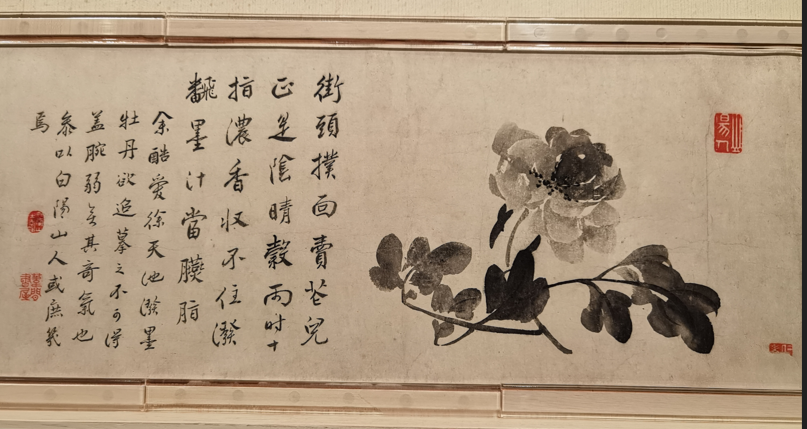 街頭撲面賣花兒
正是陰晴穀雨時十
指濃香収不住潑
飜墨汁當臙脂
余酷愛徐天池潑墨
牡丹欲追摹之不可得
蓋腕弱无其奇氣也
參以白陽山人或庶幾
焉